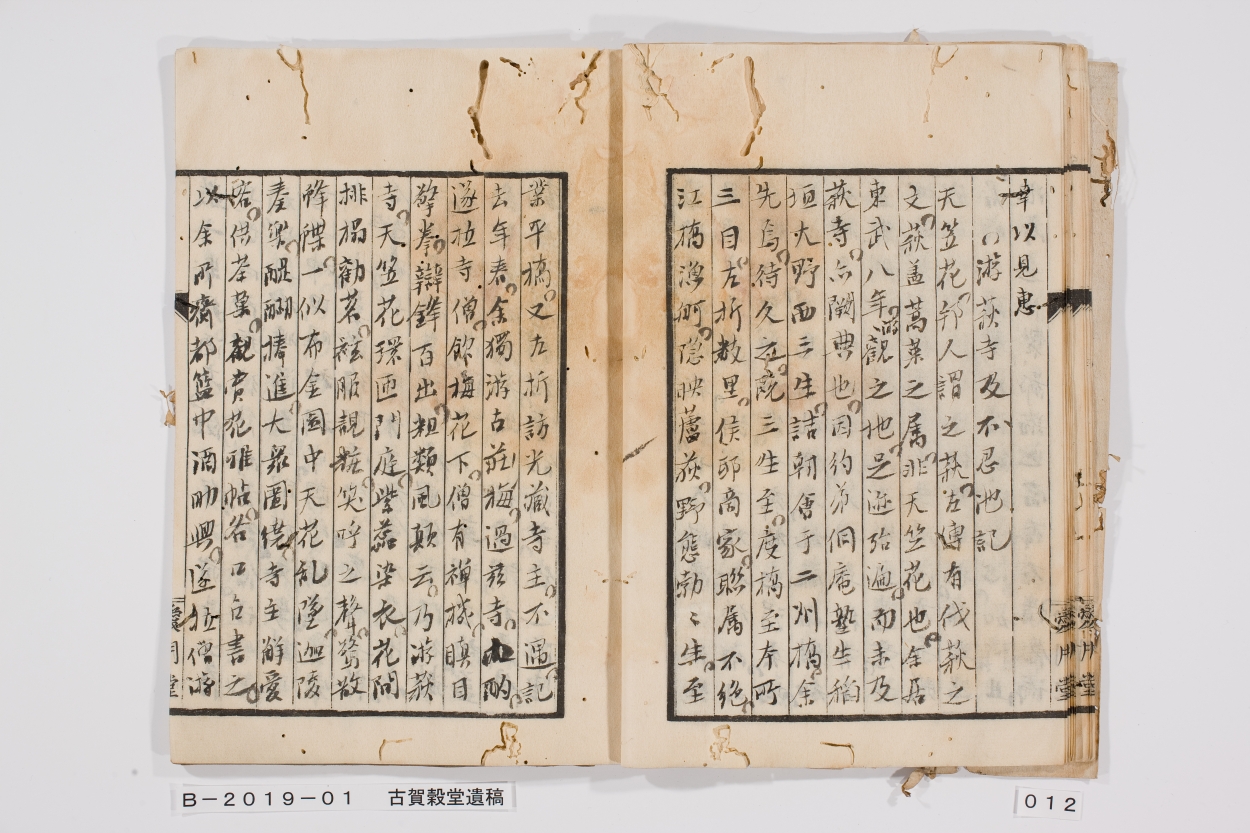 幸以見惠
游萩寺及不忍池記
天竺花邦人謂之萩左傳有伐萩之
文萩盖蒿萊之属非天竺花也余居
東武八年游觀之地足迹殆遍而未及
萩寺亦闕典也因約弟侗庵塾生稲
垣大野西三生詰朝會于二州橋余
先焉待久之既三生至度橋至本所
三目左折数里侯邸商家聯属不絶
江橋漁舸隠映蘆荻野態勃々生至
業平橋又左折訪光蔵寺主不遇記
去年春余獨游古荘梅過茲寺酌
遂拉寺僧飲梅花下僧有禅機瞋目
擎拳辯鋒百出粗類風顛云乃游萩
寺天竺花環匝門庭紫蕊染衣花間
排榻勸茗服靚粧笑呼之聲鷺散
一似布金園中天花乱墜迦陵
奏樂醍醐捧進大衆圍繞寺主辭愛
客供茶菓觀賞花雅帖各口占書之
以余所齎都籃中酒助興遂拉僧游
愛月堂
愛月堂
B-2019-01 古賀穀堂遺稿
012